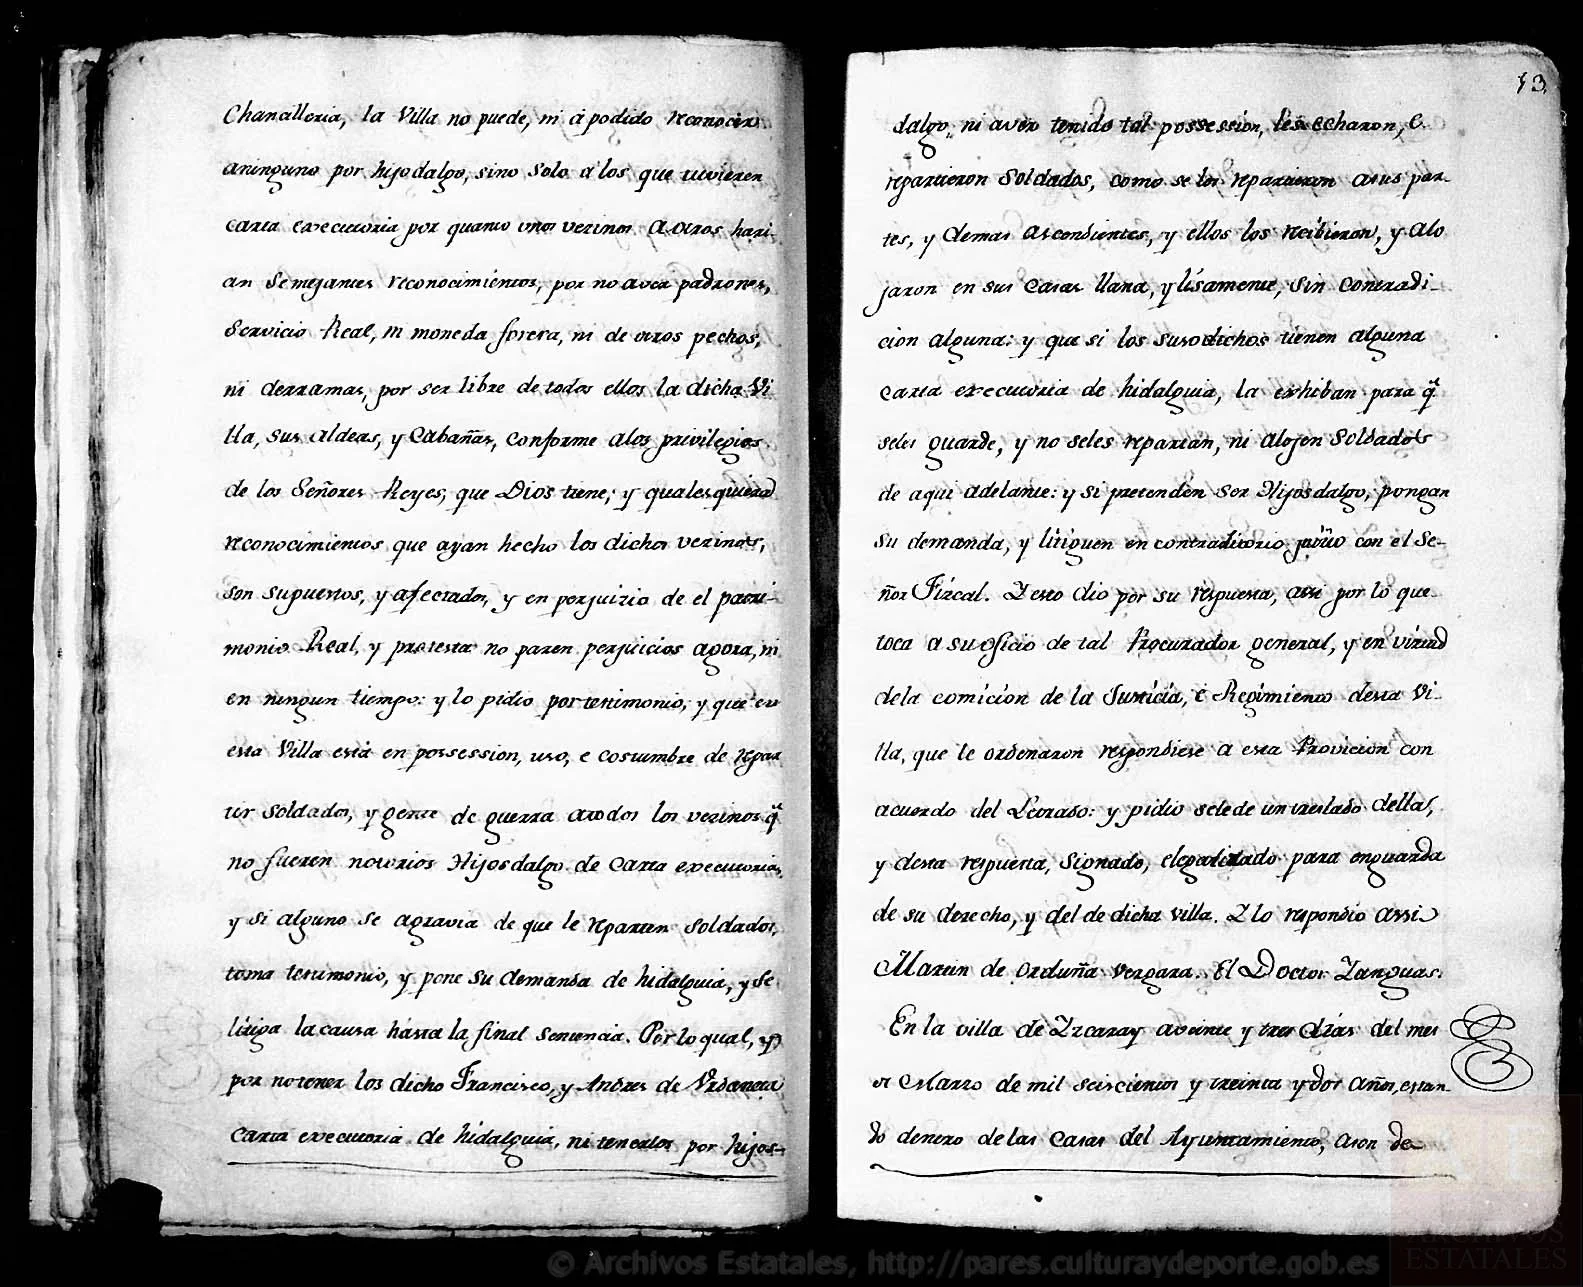 Chancilleria, la Villa no puede, ni á podido reconocer
aninguno por hijodalgo, sino solo alos que tuvieren
carta executoria por quanto unos vezinos a otros hari-
an semejantes reconocimientos, por no aver padrones,
Servicio Real, ni moneda forera, ni de otros pechos,
ni derramas, por ser libre de todos ellos la dicha Vi
lla, sus aldeas, y Cabañas, conforme alos privilegios
de los Señores Reyes, que Dios tiene; y qualesquiera
reconocimientos que ayan hecho los dichos vezinos,
son supuestos, y afectados, y en perjuizio de el patri-
monio Real, y protesta no paren perjuicios agora, ni
en ningun tiempo: y lo pidio por testimonio, y que en
esta Villa està en possession, uso, e costumbre de repar
tir soldados, y gente de guerra atodos los vezinos q̃
no fueren notorios Hijosdalgo de carta executoria,
y si alguno se agravia de que le reparten soldados,
toma testimonio, y pone su demanda de hidalguia, y se
litiga la causa hasta la final sentencia. Por lo qual, y
por notener los dicho Francisco, y Andres de Urdaneta
carta executoria de hidalguia, ni tenerlos por hijos-
13
dalgo, ni aver tenido tal possession, les echaron, e
repartieron Soldados, como se los repartieron asus par-
tes, y demas ascendientes, y ellos los recibieron, y alo
jaron en sus casas llana, y lisamente, sin contradi-
cion alguna: y que si los susodichos tienen alguna
carta executoria de hidalguia, la exhiban para q̃
seles guarde, y no seles repartan, ni alojen soldados
de aqui adelante: y si pretenden ser Hijosdalgo, pongan
su demanda, y litiguen en contraditorio juizio con el Se-
ñor Fizcal. Y esto dio por su respuesta, assi por lo que
toca a su oficio de tal Procurador general, y en virtud
dela comicion de la Justicia, e Regimiento desta Vi-
lla, que le ordenaron respondiese a esta Provicion con
acuerdo del Letrado: y pidio sele de un traslado della,
y desta respuesta, signado, elegalizado para enguarda
de su derecho, y del de dicha villa. Y lo respondio assi
Martin de Orduña Vergara. El Doctor Yanguas.
En la villa de Ezcaray aveinte y tres dias del mes
de Marzo de mil seiscientos y treinta y dos años, estan-
do dentro de las casas del Ayuntamiento, ason de
© Archivos Estatales, http://pares.culturaydeporte.gob.es
ARCHIVOS
ESTATALES